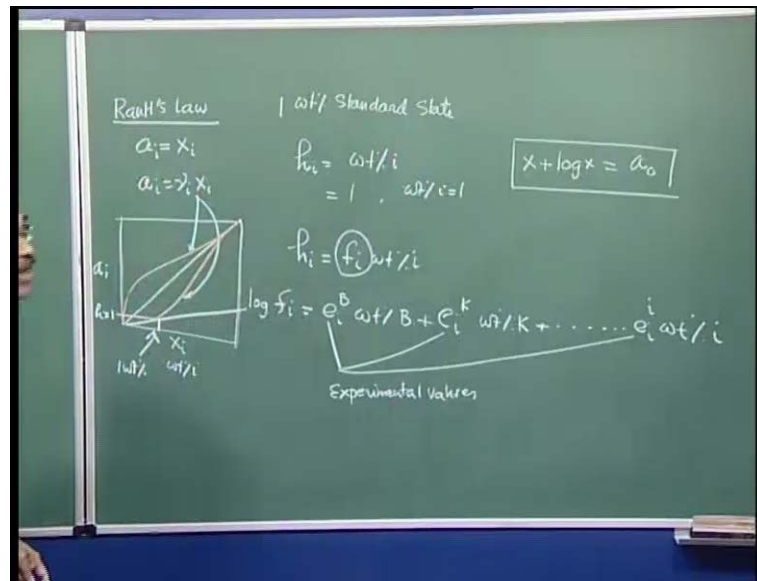 Rault's Law
a_i = x_i
a_i = γ_i x_i
a_i
h=1
x_i
1wt% wt% i
1 wt% Standard State
h_i = wt% i
= 1 , wt% i=1
h_i = f_i wt% i
log f_i = e_i^B wt% B + e_i^K wt% K + ....... e_i^i wt% i
Experimental values
x + log x = a_0